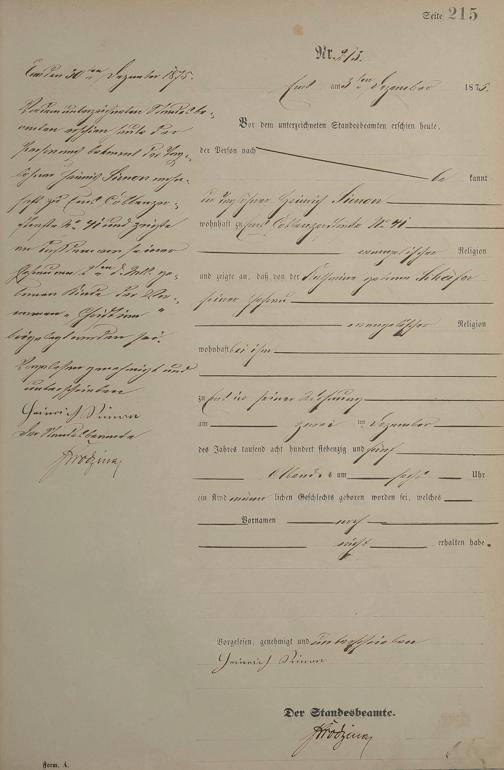 Seite 215
Nr. 215.
Ems am 3ten Dezember 1875.
Vor dem unterzeichneten Standesbeamten erschien heute,
der Person nach
be kannt
der Taglöhner Heinrich Simon
wohnhaft zu Ems Coblenzerstraße No 41
evangelischer Religion
und zeigte an, daß von der Catharine geborene Schäfer
seiner Ehefrau
evangelischer Religion
wohnhaft bei ihm
zu Ems in seiner Wohnung
am zwei ten Dezember
des Jahres tausend acht hundert siebenzig und fünf
Abends um sechs Uhr
ein Kind männ lichen Geschlechts geboren worden sei, welches
Vornamen noch
nicht erhalten habe.
Vorgelesen, genehmigt und unterschrieben
Heinrich Simon
Der Standesbeamte.
Ems den 30ten Dezember 1875.
Vor dem unterzeichneten Standesbe-
amten erschien heute der
Persönlichkeit bekannt der Tag-
löhner Heinrich Simon wohn-
haft zu Ems Coblenzer-
straße No 41 und zeigte
an daß dem von seiner
Ehefrau am 2ten d. Mts. ge-
borenen Kinde der Vor-
name
beigelegt worden sei.
Vorgelesen genehmigt und
unterschrieben
Heinrich Simon
Der Standesbeamte
Form. A.